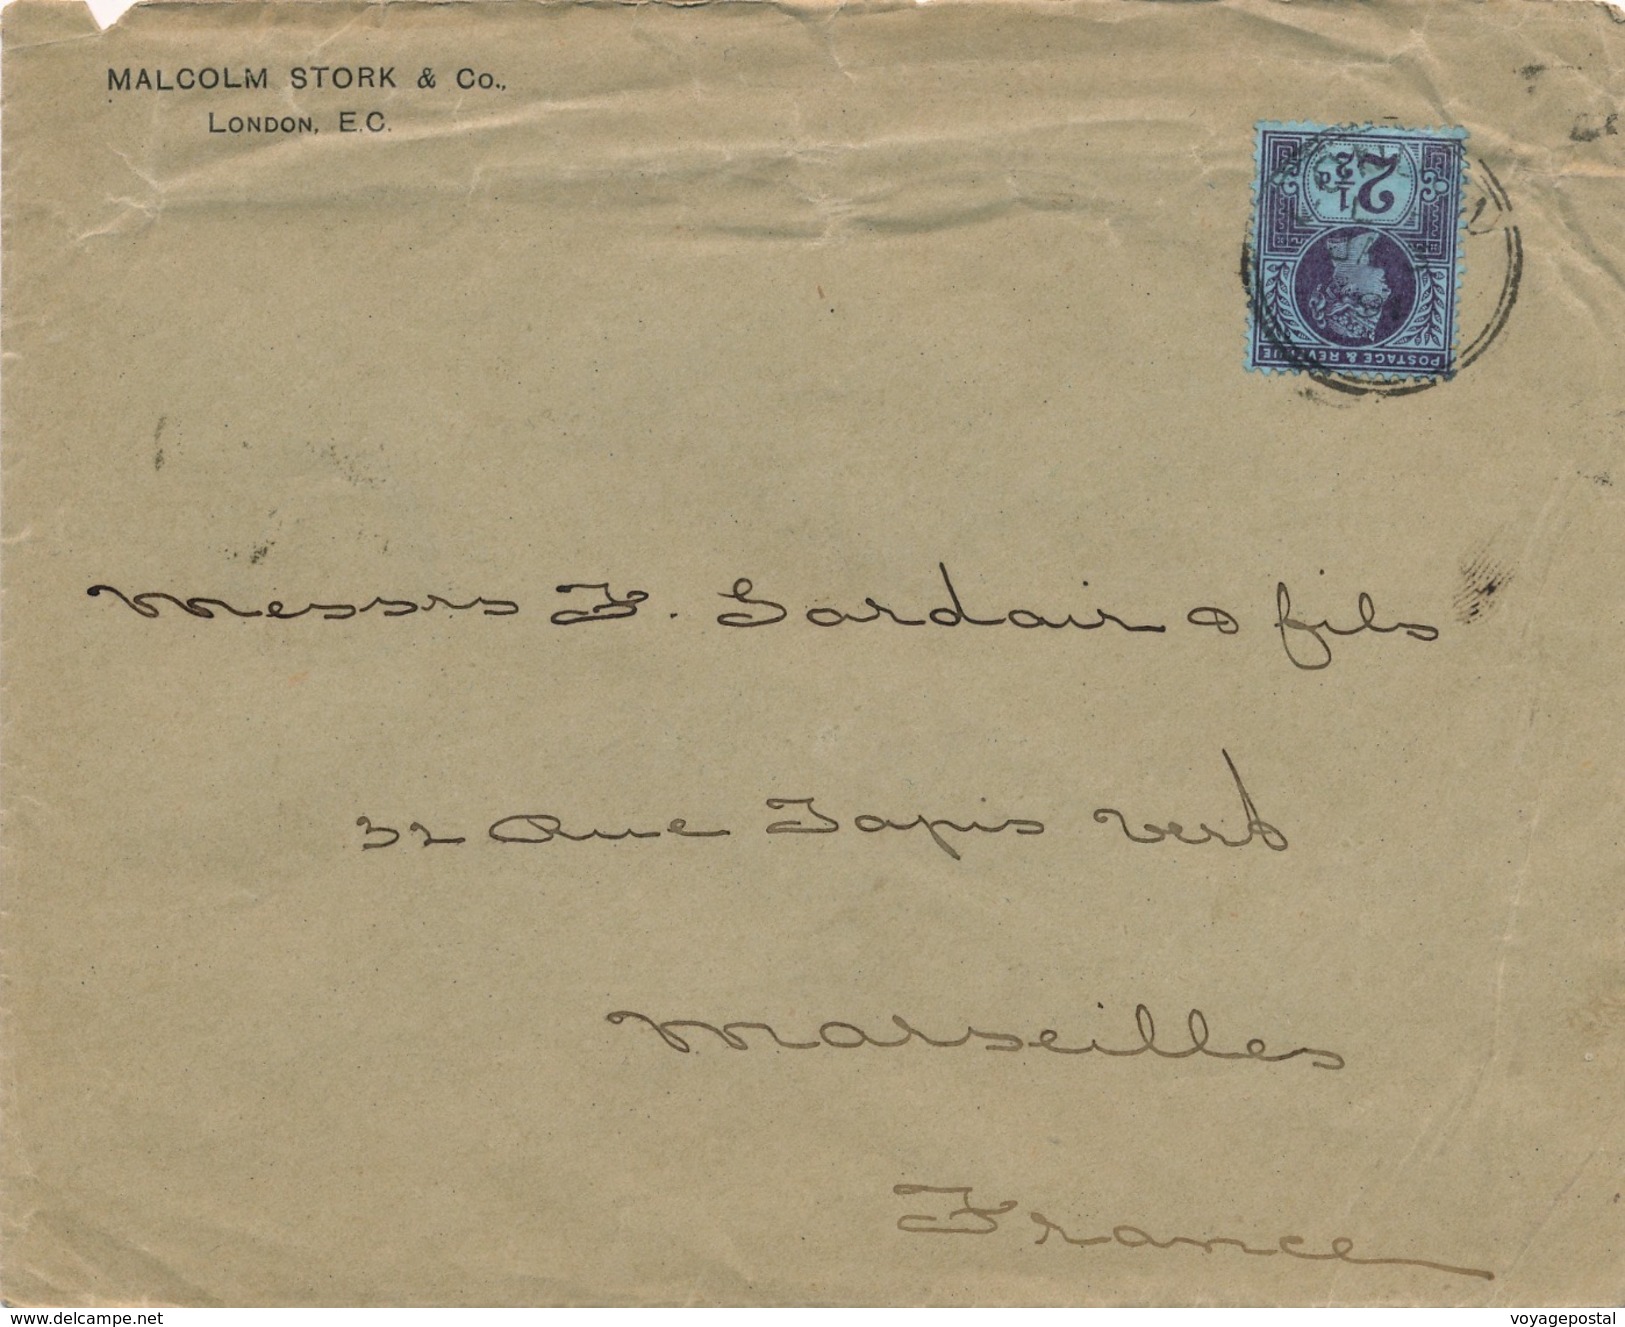 MALCOLM STORK & Co.,
LONDON, E.C.
2½d
POSTAGE & REVENUE
Messrs F. Sardair & fils
32 Rue Tapis Vert
Marseilles
France
delcampe.net
voyagepostal